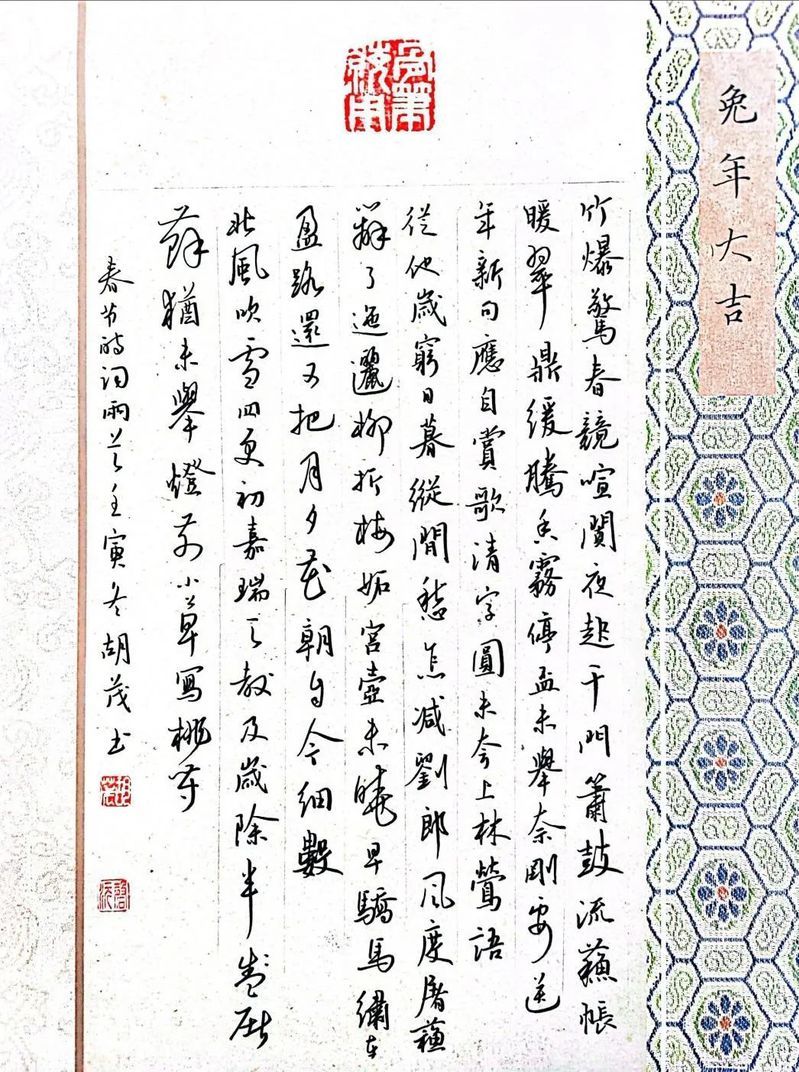 兔年大吉
竹爆驚春競喧闐夜起千門簫鼓流蘇帳
暖翠鼎緩騰香霧停盃未舉奈剛要送
年新句應自賞歌清字圓未夸上林鶯語
從他歲窮日暮縱閒愁怎減劉郎風度屠蘇
辦了迤邐柳折梅妬宮壺未曉早驕馬繡車
盈路還又把月夕花朝自今細數
北風吹雪四更初嘉瑞天教及歲除半盞屠
蘇猶未舉燈前小草寫桃符
春节诗词兩首壬寅冬胡茂书
胡茂